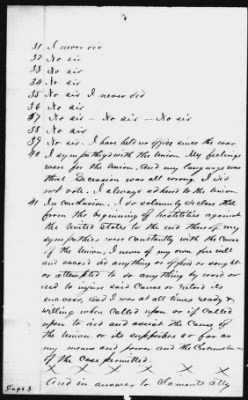 31 I never did
32 No sir
33 No sir
34 No sir
35 No sir I never did
36 No sir
37 No sir - No sir - No sir
38 No sir
39 No sir. I have held no office since the war
40 I sympathized with the Union My feelings
were for the Union And my language was
that Secession was all wrong I did
not vote. I always adhered to the Union
41 In conclusion. I do solemnly declare that
from the beginning of hostilities against
the United States to the end thereof my
sympathies were constantly with the Cause
of the Union, I never of my own free will
and accord do anything or offered or sought
or attempted to do anything by word or
deed to injure said Cause or retard its
success, And I was at all times ready &
willing when Called upon or if called
upon to aid and assist the Cause of
the Union or its supporters so far as
my means and power and the Circumstances
of the Case permitted.
X X X X X X
And in answer to Claimants Atty
Page 3